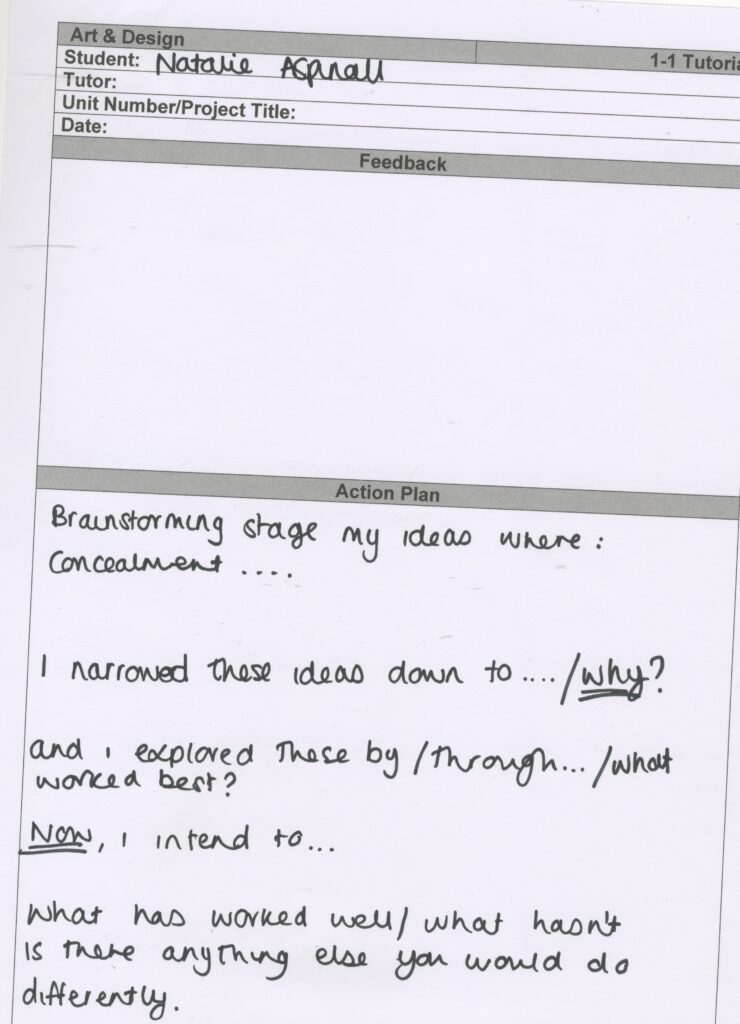 Art & Design
1-1 Tutoria
Student: Natalie Aspinall
Tutor:
Unit Number/Project Title:
Date:
Feedback
Action Plan
Brainstorming stage my ideas where :
Concealment ....
I narrowed these ideas down to .... /why?
and i explored these by /through... /what
worked best?
Now, i intend to...
What has worked well/ what hasn't
is there anything else you would do
differently.